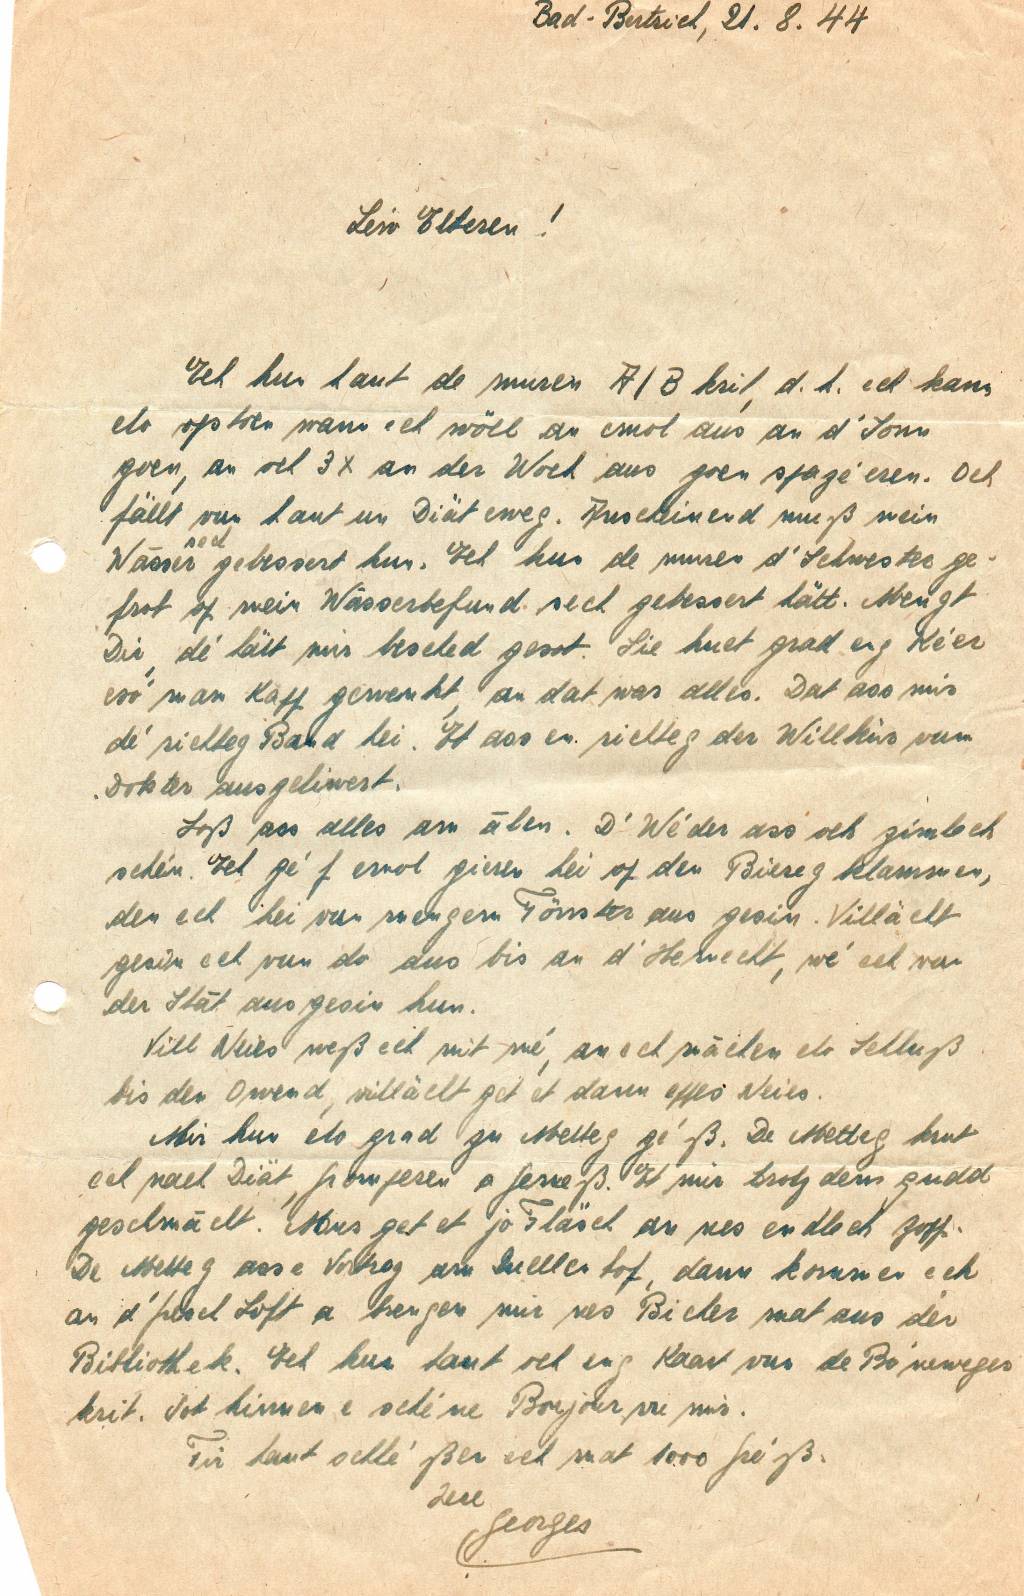 Bad-Bertrich, 21. 8. 44
Léiw Elteren !
Ech hun haut de muren A/B krit, d. h. ech kann
elo opstoen wann ech wöll an emol aus an d'Sonn
goen, an och 3X an der Woch aus goen spazéieren. Och
fällt vun haut un Diät eweg. Anscheinend muß mein
Wässer sech gebessert hun. Ech hun de muren d'Schwester ge-
frot op mein Wässerbefund sech gebessert hätt. Mengt
Dir, dé hätt mir bescheed gesot. Sie huet grad eng Kéier
esó mam Kapp gewenkt, an dat war alles. Dat ass mir
dé richteg Band hei. Et ass en richteg der Willkür vum
Dokter ausgeliwert.
Soß ass alles am ālen. D'Wéder ass och zimlech
schén. Ech gé f emol gieren hei op den Biereg klammen,
den ech hei vun mengem Fönster aus gesin. Villäicht
gesin ech vun do aus bis an d'Hemecht, wé ech vun
der Stāt aus gesin hun.
Vill Neies weß ech nit mé, an ech māchen elo Schluß
bis den Owend, villäicht get et dann eppes Neies.
Mir hun elo grad zu Metteg géß. De Metteg krut
ech nach Diät, Gromperen a Geméß. Et mir trotzdem gudd
geschmācht. Mur get et jo Fläsch an nes endlech Zopp.
De Metteg ass e Vortrag am Quellenhof, dann kommen ech
an d'frësch Loft a brengen mir nes Bicher mat aus der
Bibliothek. Ech hun haut och eng Kaart vun de Bóneweger
krit. Sot hinnen e schéne Bonjour vu mir.
Fir haut schléßen ech mat 1000 Gréß.
Jere
Georges